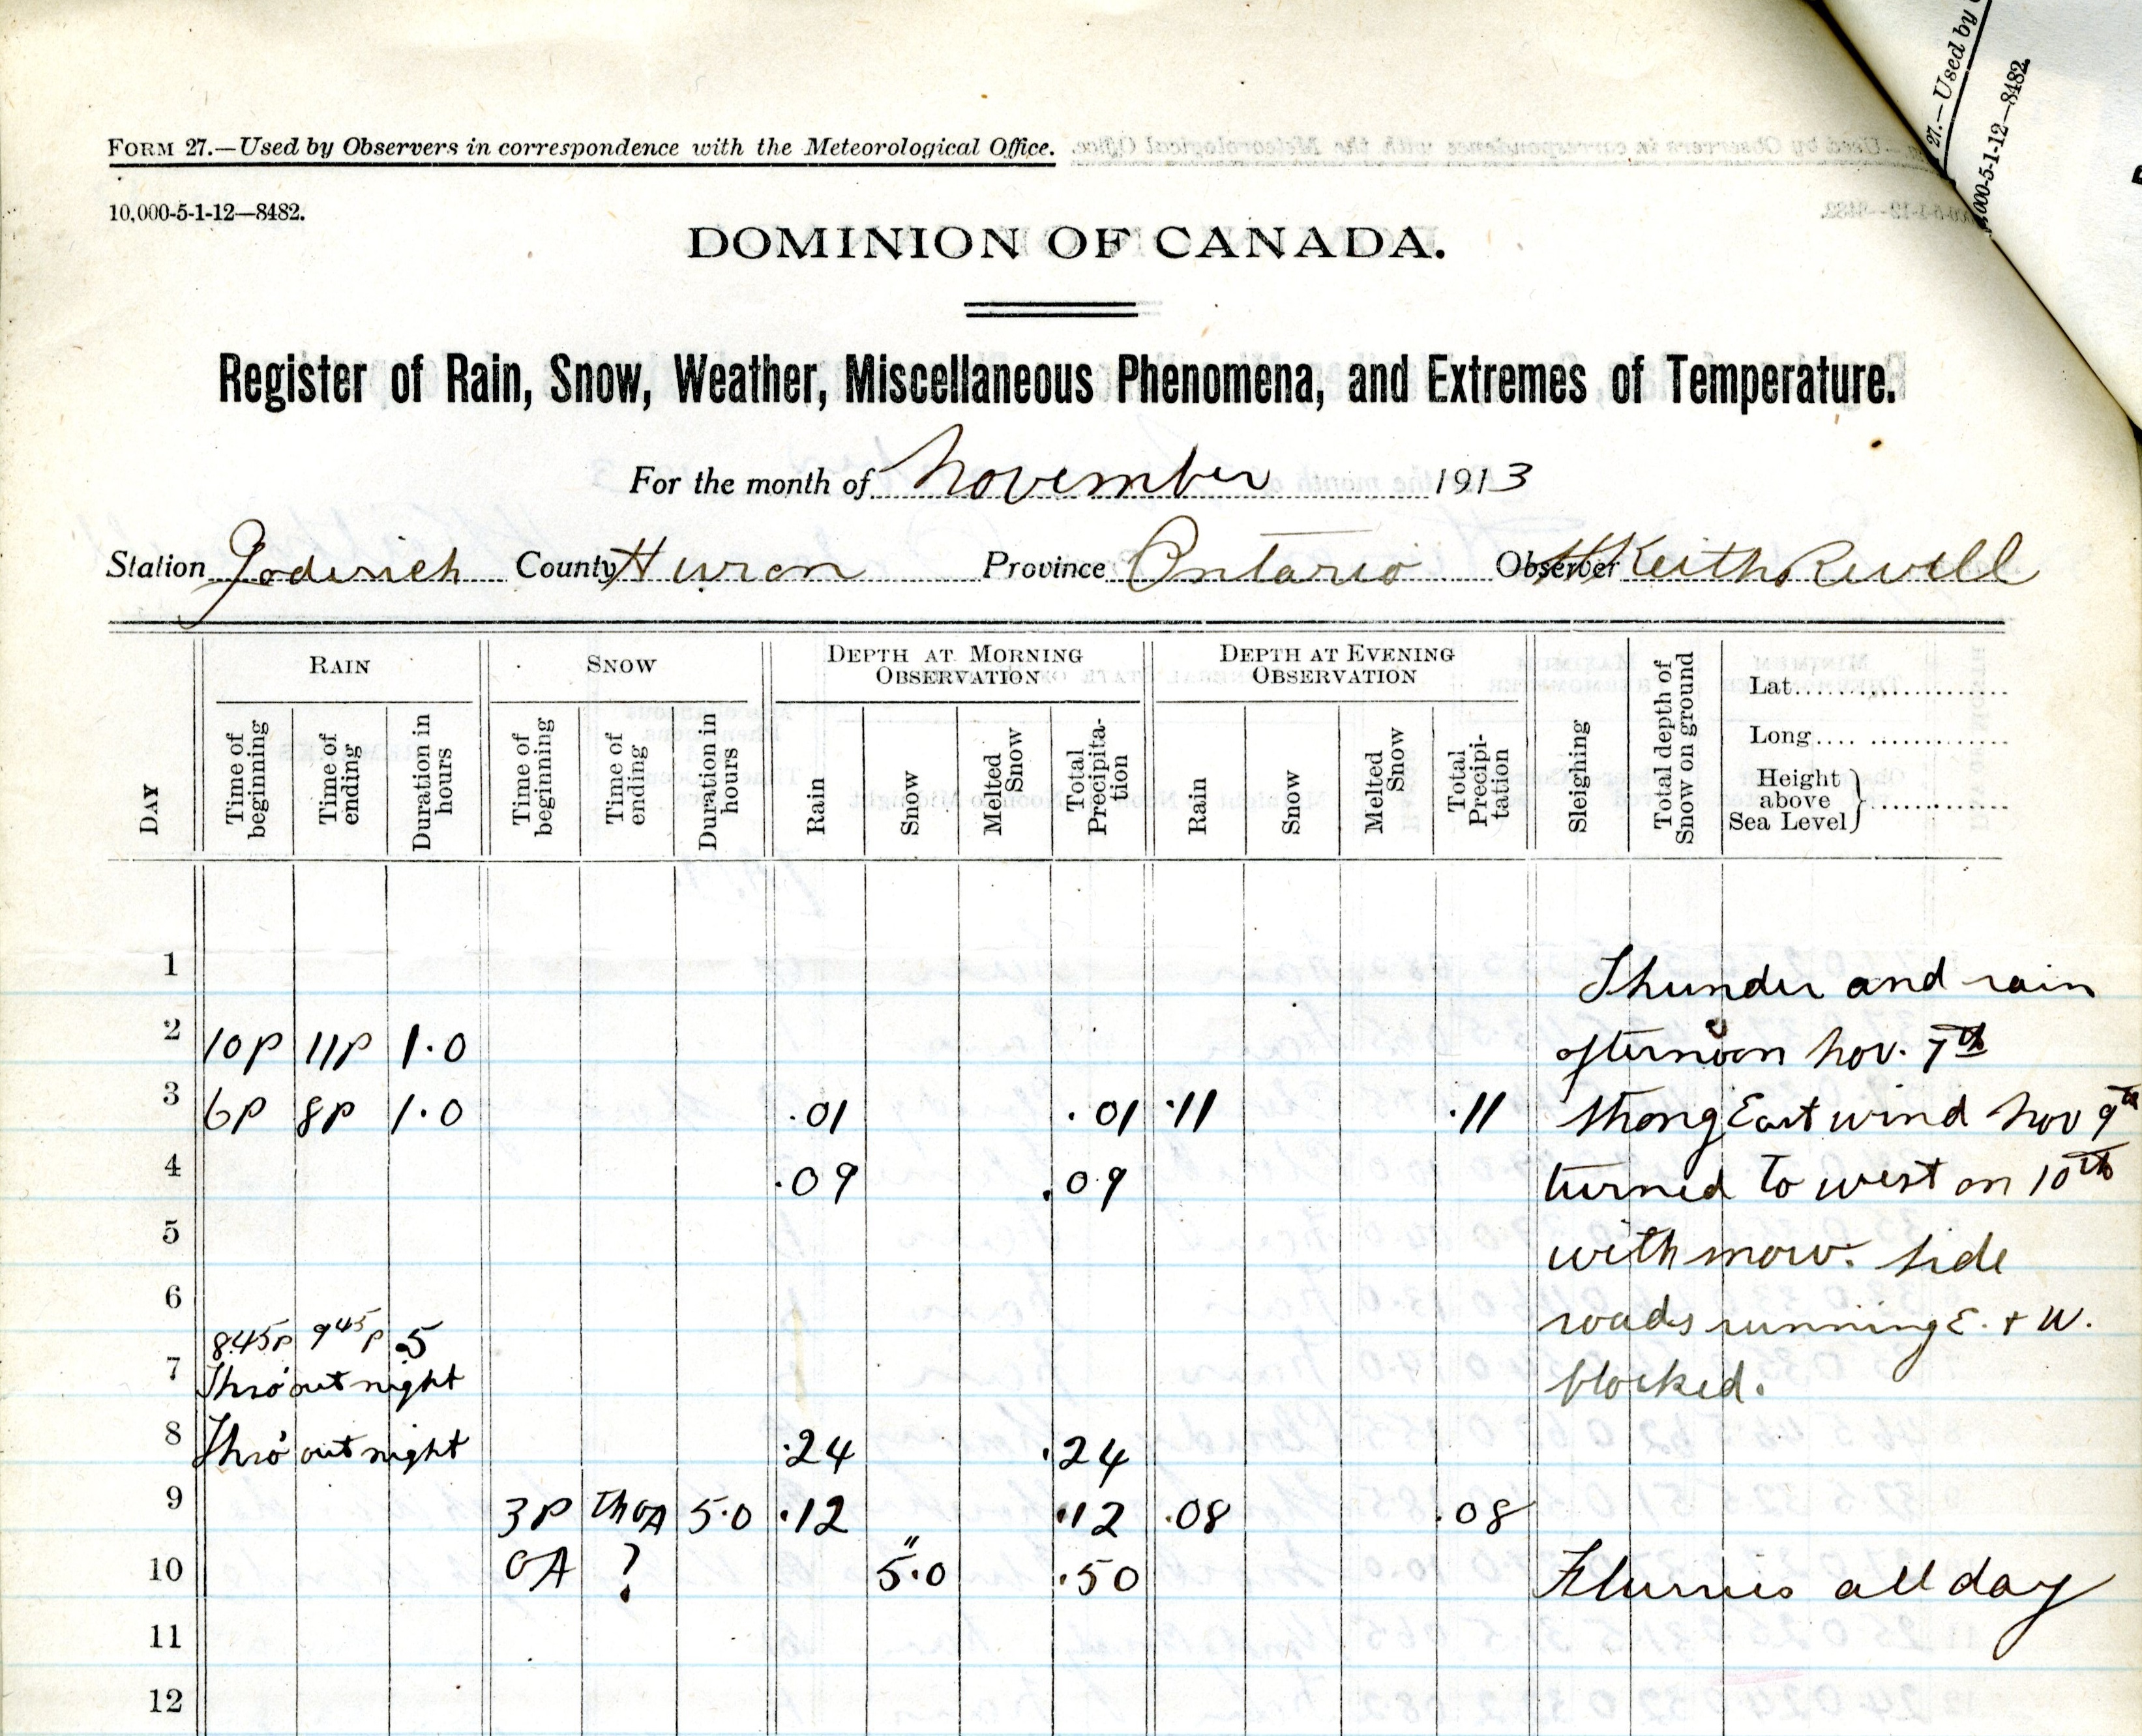 FORM 27.—Used by Observers in correspondence with the Meteorological Office.
10,000-5-1-12—8482.
27.—Used by
000-5-1-12—8482.
DOMINION OF CANADA.
Register of Rain, Snow, Weather, Miscellaneous Phenomena, and Extremes of Temperature.
For the month of November 1913
Station Goderich County Huron Province Ontario Observer H Keith Revell
DAY
RAIN
Time of beginning
Time of ending
Duration in hours
SNOW
Time of beginning
Time of ending
Duration in hours
DEPTH AT MORNING OBSERVATION
Rain
Snow
Melted Snow
Total Precipitation
DEPTH AT EVENING OBSERVATION
Rain
Snow
Melted Snow
Total Precipitation
Sleighing
Total depth of Snow on ground
Lat.
Long.
Height above Sea Level
1 Thunder and rain
2 10P 11P 1.0 afternoon Nov. 7th
3 6P 8P 1.0 .01 .01 .11 .11 Strong East wind Nov 9th
4 .09 .09 turned to west on 10th
5 with snow. Side
6 roads running E. + W.
8.45P 9 45 P .5
7 Thro'out night blocked.
8 Thro'out night .24 .24
9 3P Thro A 5.0 .12 .12 .08 .08
10 0A ? 5.0" .50 Flurries all day
11
12